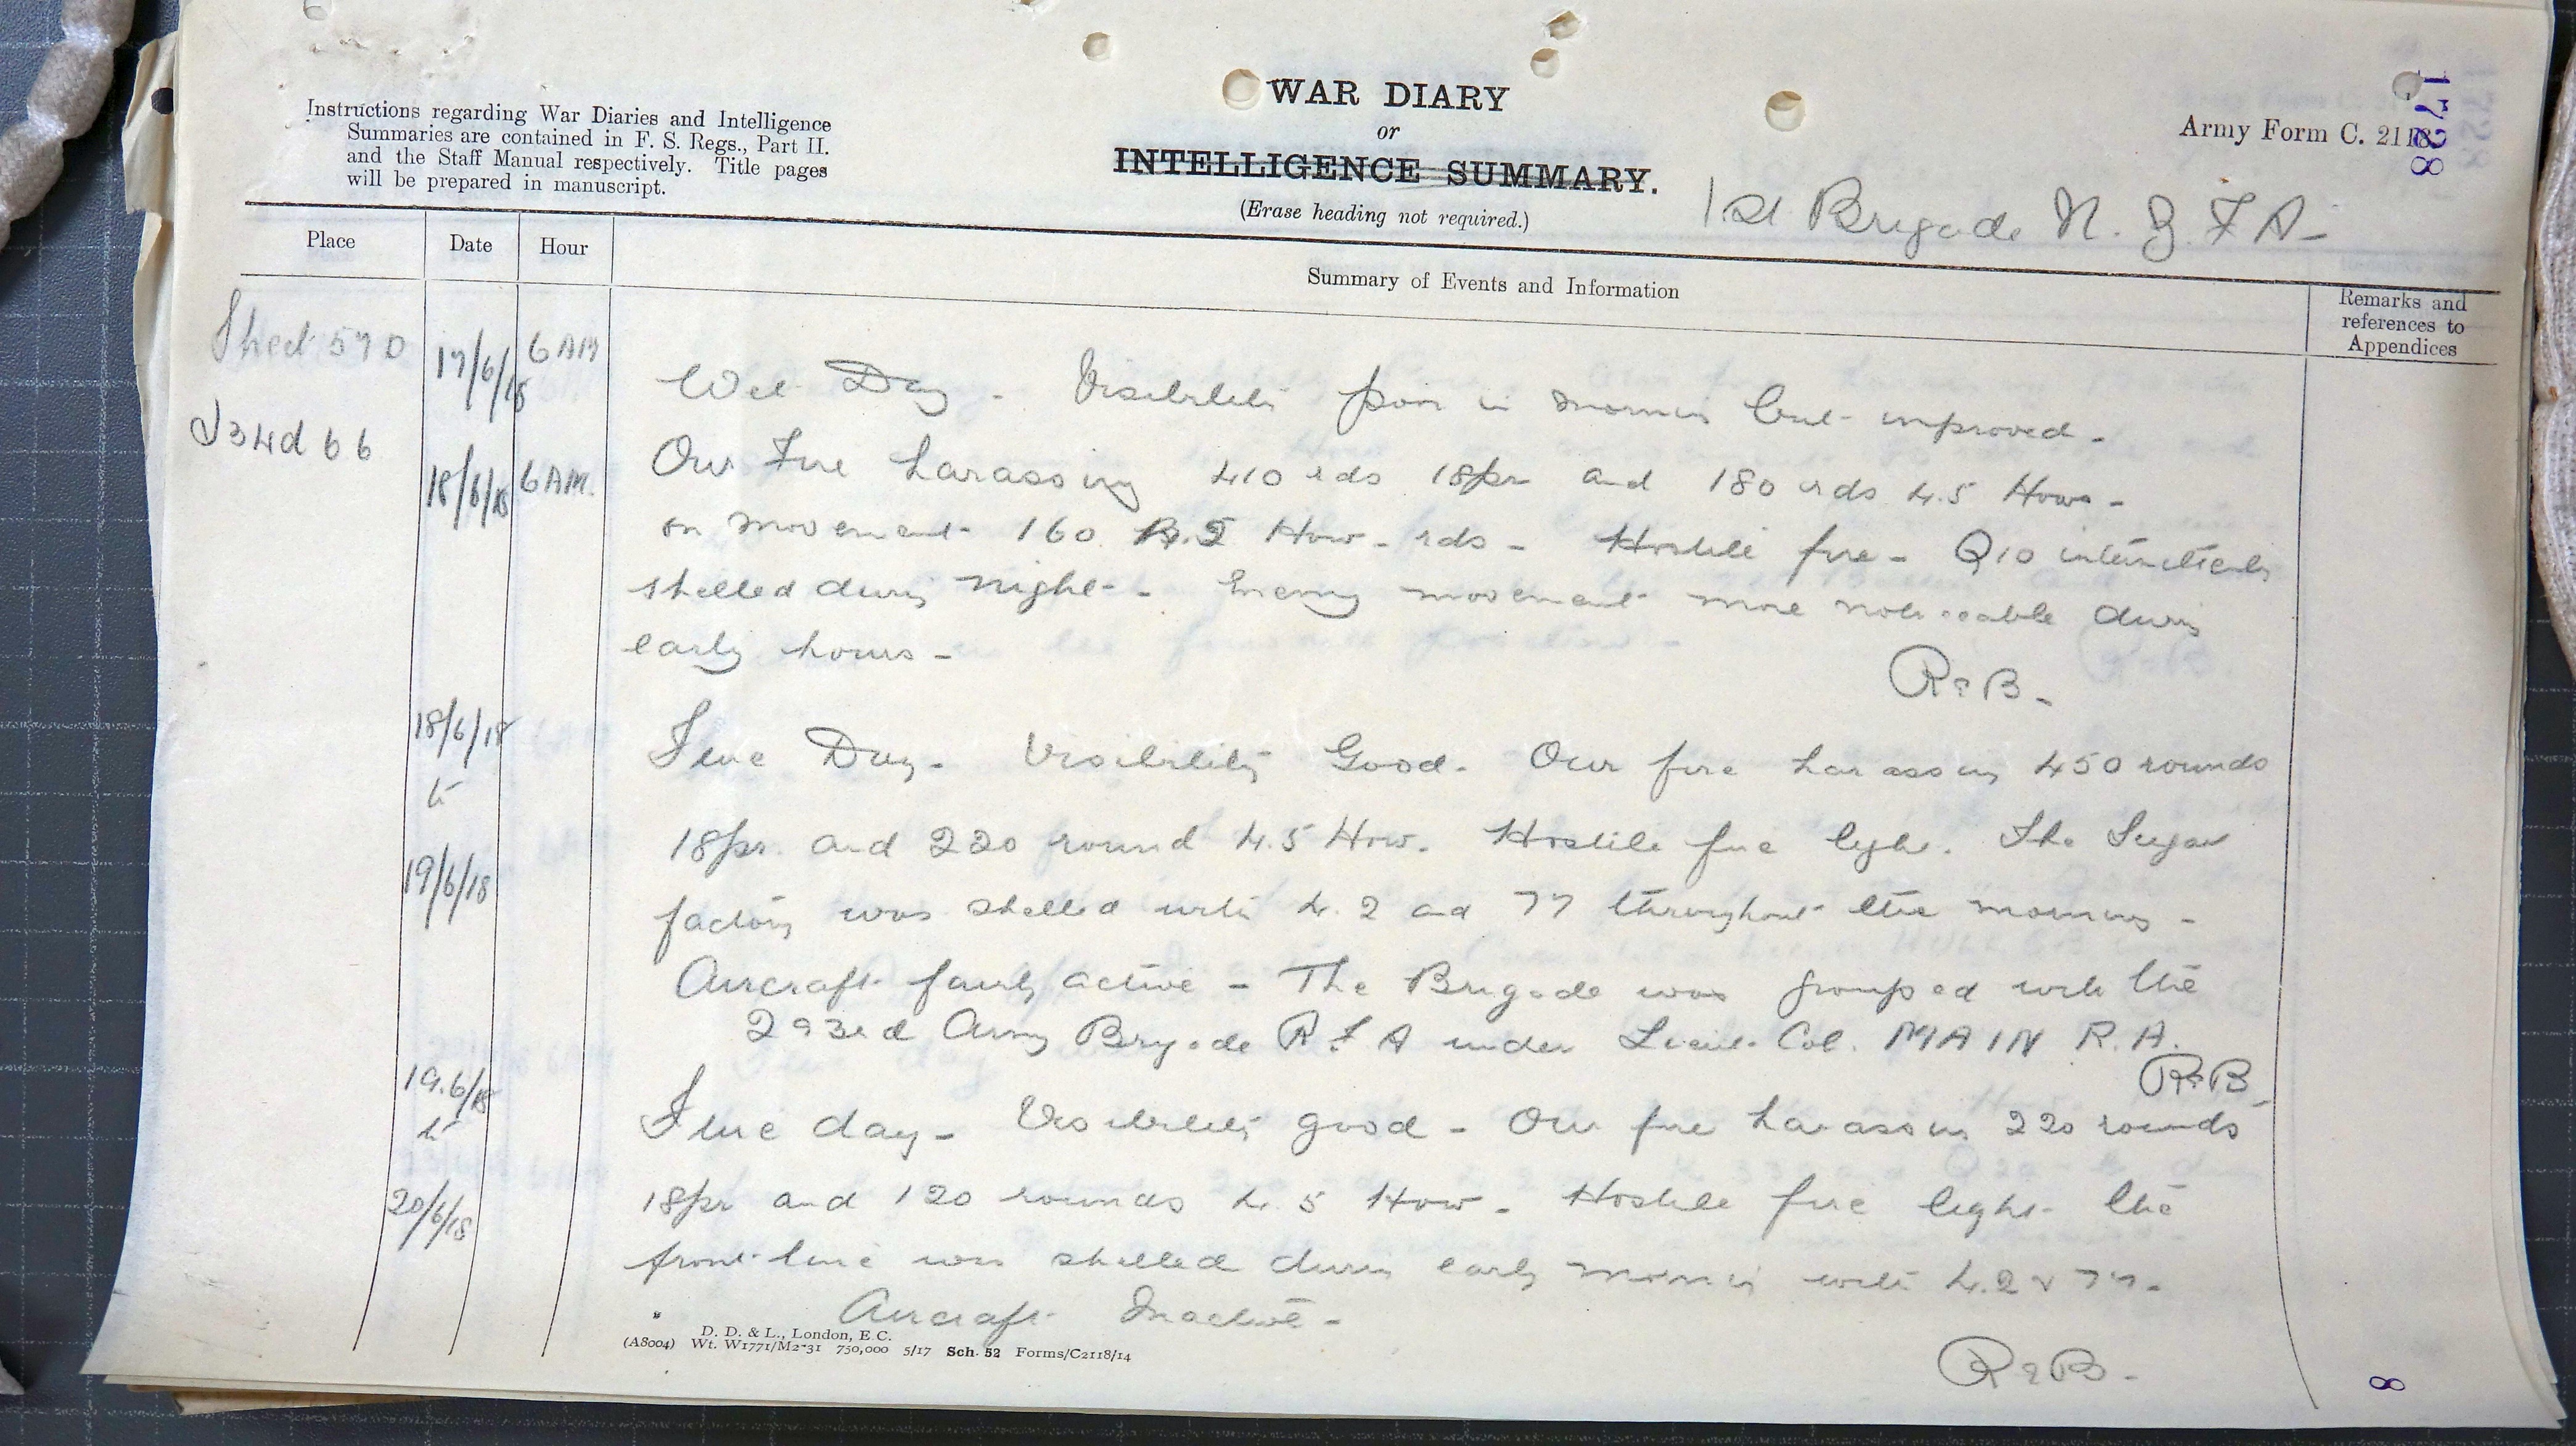 Instructions regarding War Diaries and Intelligence
Summaries are contained in F. S. Regs., Part II.
and the Staff Manual respectively. Title pages
will be prepared in manuscript.
WAR DIARY
or
INTELLIGENCE SUMMARY.
(Erase heading not required.)
Army Form C. 2118.
1728
1st Brigade N. Z. F A -
Place
Date
Hour
Summary of Events and Information
Remarks and
references to
Appendices
Sheet 57D
J34d 66
17/6/18 6 AM
18/6/18 6 AM.
Wet Day - Visibility poor in morning but improved -
Our Fire harassing 410 rds 18pr and 180 rds 4.5 Hows -
on movement 160 How - rds - Hostile fire - Q10 intermittently
shelled during night - Enemy movement more noticeable during
early hours -
18/6/18
to
19/6/18
Fine Day - Visibility Good - Our fire harassing 450 rounds
18pr. and 220 round 4.5 How. Hostile fire light. The Sugar
factory was shelled with 4.2 and 77 throughout the morning -
Aircraft fairly active - The Brigade was grouped with the
293rd Army Brigade R F A under Lieut. Col. MAIN R.A.
19.6/18
to
20/6/18
Fine day - Visibility good - Our fire harassing 220 rounds
18pr and 120 rounds 4.5 How - Hostile fire light the
front line was shelled during early morning with 4.2 & 77 -
Aircraft Inactive -
D. D. & L., London, E.C.
(A8004) Wt. W1771/M2-31 750,000 5/17 Sch. 52 Forms/C2118/14
8